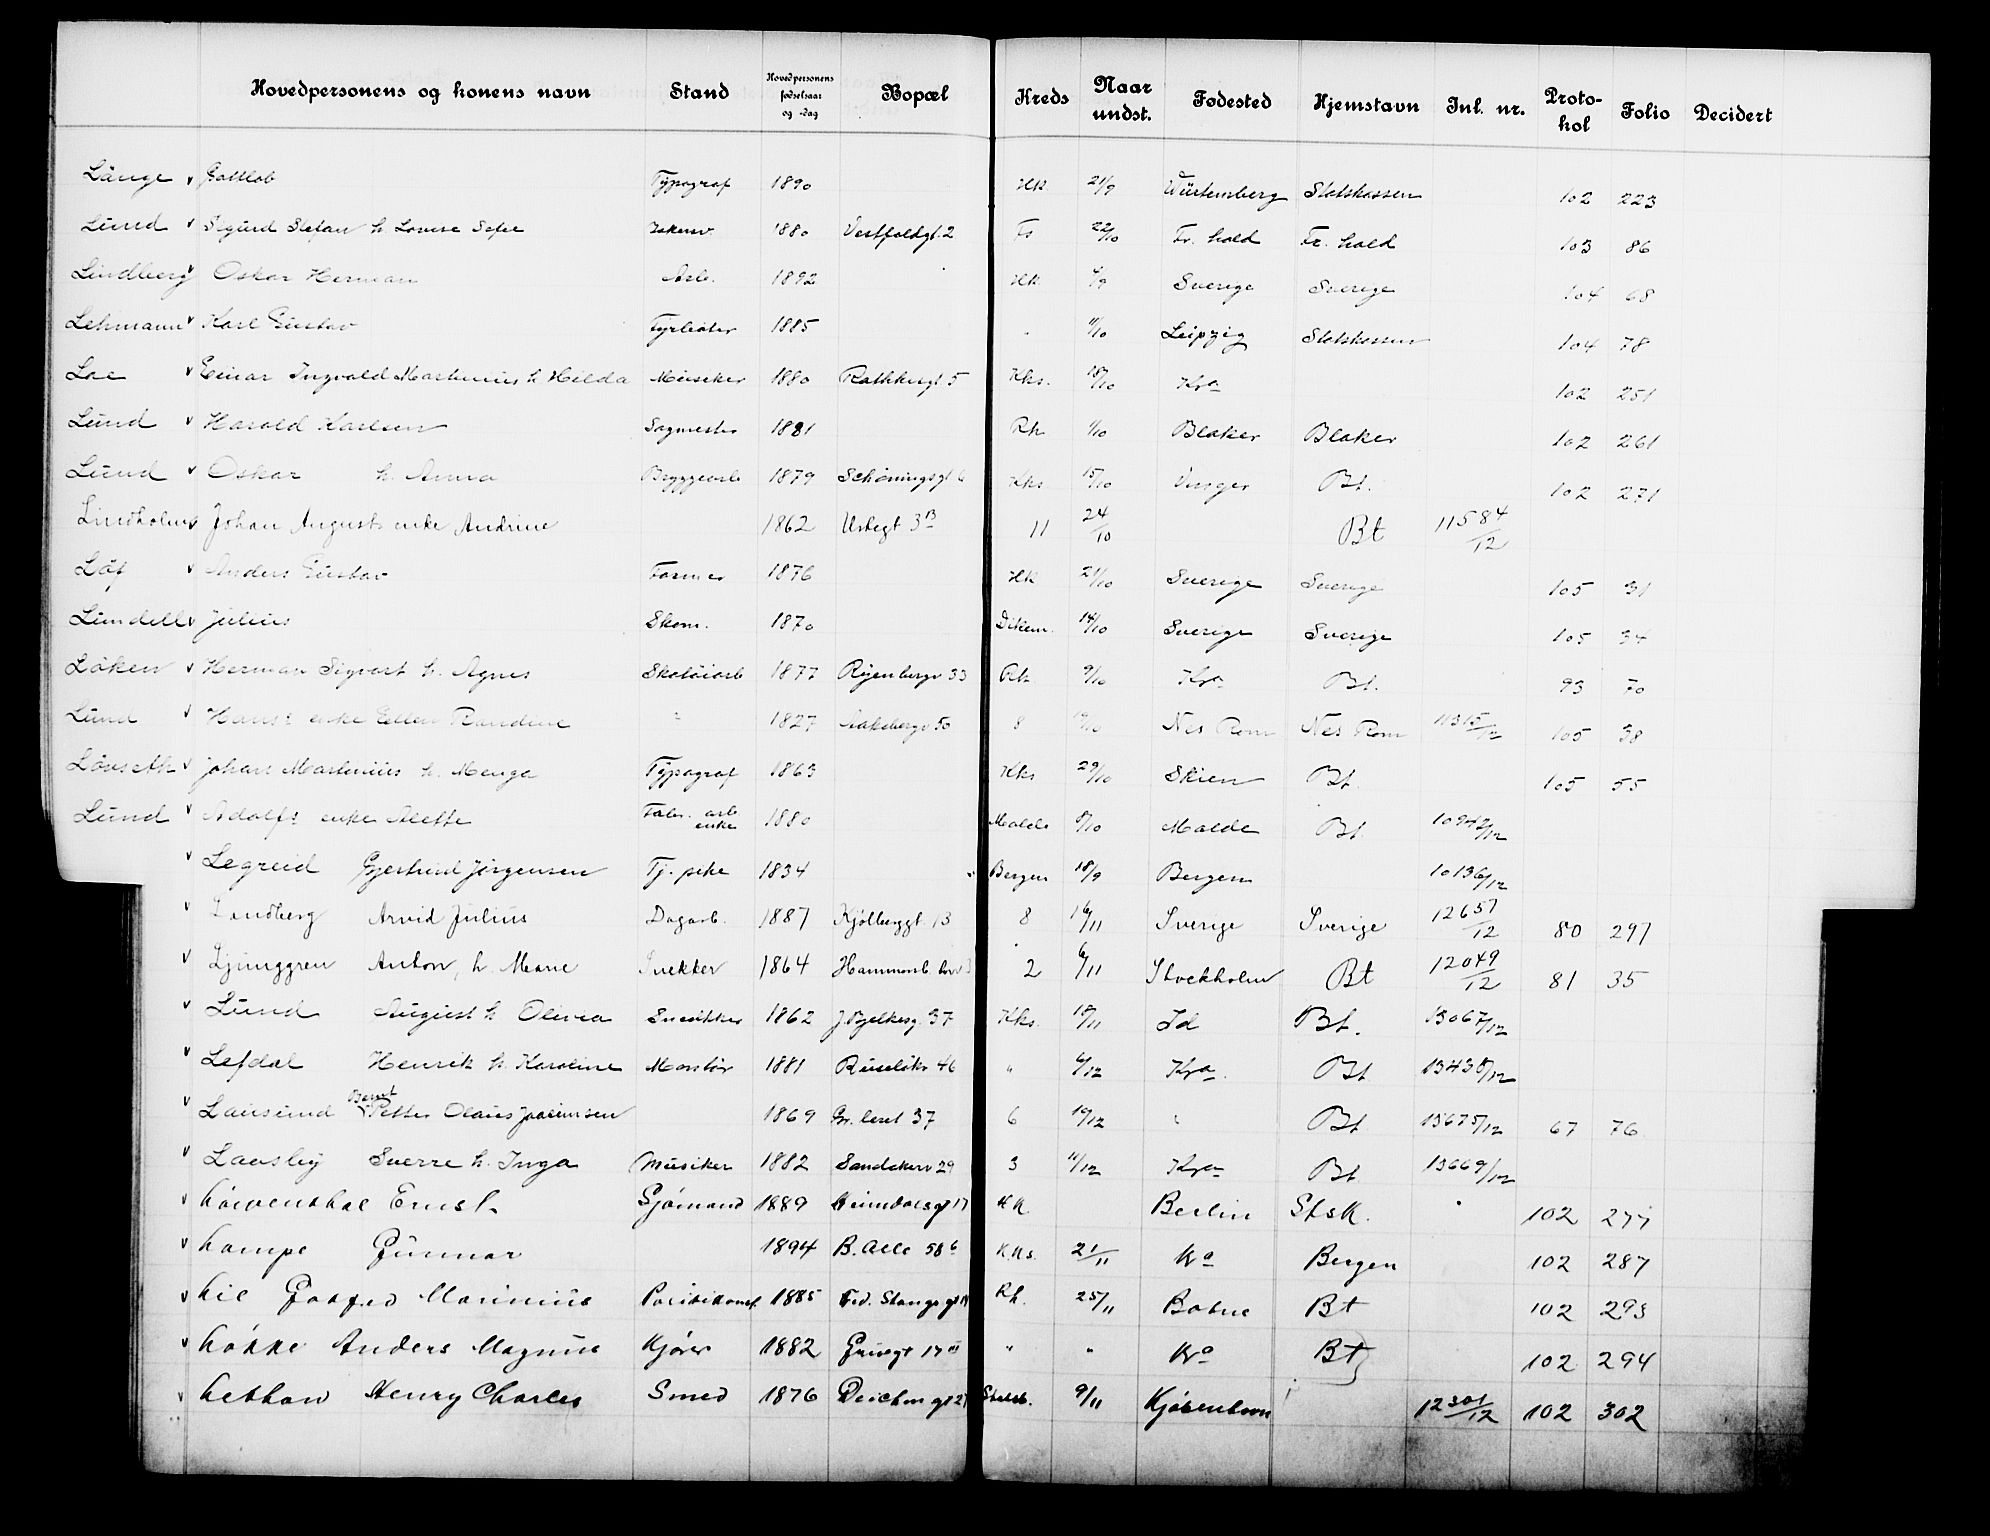 Hovedpersonens og konens navn Stand Hovedpersonens fødselsaar og -dag Bopæl Kreds Naar undst. Fødested Hjemstavn Inl. nr. Proto-kol Folio Decidert
Länge v Gottlob Typograf 1890 Hk 21/9 Würtemberg Statskassen 102 223
Lund v Sigurd Stefan h. Lovise Sofie 1880 Vestfoldgt. 2 Fs 22/10 Fr. hald Fr. hald 103 86
Lindberg v Oskar Herman Arb. 1892 Hk 4/9 Sverige Sverige 104 68
Lehmann v Karl Gustav Fyrbøter 1885 " 11/10 Leipzig Statskassen 104 78
Loe v Einar Ingvald Martinius h Hilda Musiker 1880 Rathkesgt 5 Kks. 18/10 Kra 102 251
Lund v Harald Karlsen Sagmester 1881 Rh 1/10 Blaker Blaker 102 261
Lund v Oskar h. Anna Bryggearb 1879 Schøningsgt 6 Kks 15/10 Vinger Bt. 102 271
Lindholm v Johan Augusts enke Andrine 1862 Urtegt 3 B 11 24/10 Bt 11584/12
Löf v Anders Gustav Former 1876 Hk 21/10 Sverige Sverige 105 31
Lundell v Julius Skom. 1870 Dikem. 14/10 Sverige Sverige 105 34
Løken v Herman Sigvart h. Agnes Skotøiarb 1877 Ryenbergv 33 Rh 9/10 Kra Bt. 93 70
Lund v Hans's enke Ellen Randine " 1827 Aakebergv 50 8 19/10 Nes Rom Nes Rom 11315/12 105 38
Løvseth v Johan Martinius h. Menga Typograf 1863 Kks 29/10 Skien Bt. 105 55
Lund v Adolfs enke Alette Fabr. arb enke 1880 Molde 8/10 Molde Bt 10942/12
v Legreid Gjertrud Jørgensen Tj. pike 1834 Bergen 18/9 Bergen 10136/12
v Landberg Arvid Julius Dagarb. 1887 Kjølberggt. 13 8 16/11 Sverige Sverige 12657/12 80 297
v Ljunggren Anton, h. Marie Snekker 1864 2 6/11 Stockholm Bt 12049/12 81 35
v Lund August h Olivia Snedkker 1862 J. Bjelkesg. 37 Kks. 18/11 Id Bt. 13067/12
v Lefdal Henrik h. Karoline Montør 1881 Ruseløkv 46 " 6/12 Kra. Bt 13438/12
v Lausund Bernt Petter Olaus Joakimsen 1869 Gr. leret 37 6 10/12 " Bt 13675/12 67 76
v Laasby Sverre h. Inga Musiker 1882 Sandakerv 29 3 11/12 Kra Bt. 13669/12
v Löwenthal Ernst Sjømand 1889 Heimdalsgt 17 H K. Berlin StsK. 102 277
v Lampe Gunnar 1894 B. Alle 58 b K.Ks. 21/11 Kra Bergen 102 287
v Lie Marinius 1885 Fred. Stangsgt Rh. 25/11 Botne Bt 102 293
v Løkke Anders Magnus Kjører 1882 Grüegt 17 III " " Kra Bt 102 294
v Henry Charles Smed 1876 Deichmgt 27 9/11 Kjøbenhavn 12301/12 102 302